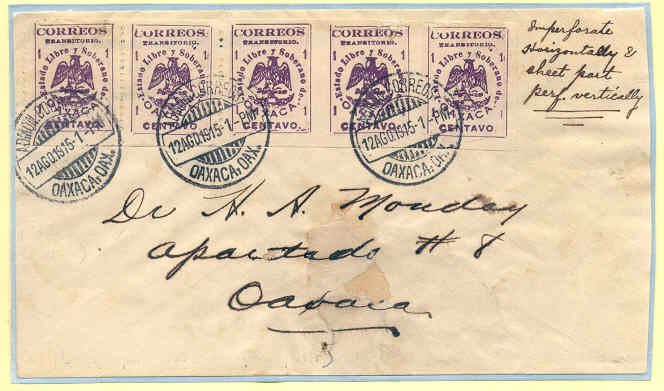 CORREOS CORREOS CORREOS CORREOS CORREOS
TRANSITORIO. TRANSITORIO. TRANSITORIO. TRANSITORIO. TRANSITORIO.
Estado Libre y Soberano de Estado Libre y Soberano de Estado Libre y Soberano de Estado Libre y Soberano de Estado Libre y Soberano de
OAXACA OAXACA OAXACA OAXACA OAXACA
1 CENTAVO 1 1 CENTAVO 1 1 CENTAVO 1 1 CENTAVO 1 1 CENTAVO 1
Imperforate
Horizontally &
sheet part
perf. vertically
12 AGO. 1915-1
OAXACA, OAX.
CORREOS
12 AGO. 1915-1 PM
OAXACA, OAX.
CORREOS
12 AGO. 1915-1 PM
OAXACA, OAX.
Dr H. A. Monday
apartado # 8
Oaxaca